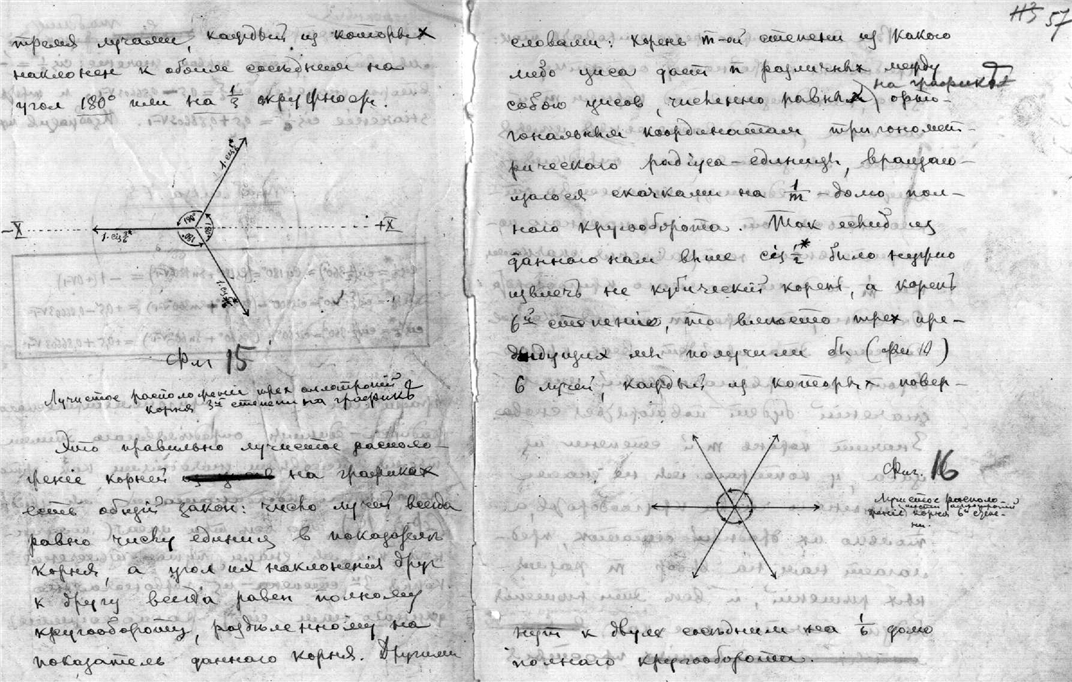 тремя лучами, каждый из которыхъ
наклоненъ к обоим соседнем на
угол 180° или на 1/3 окружност.
1·cis
180°
180°
180°
-X
+X
1·cis
Фиг 15
Лучистое расположение трех
корня 3й степени на графикѣ
Это правильно лучистое располо-
жение корней на графиках
есть общий закон: число лучей всегда
равно числу единиц в показателѣ
корня, а угол их наклонения друг
к другу всегда равен полному
кругообороту, раздѣленному на
показатель данного корня. Другими
57
словами: корень m-ой степени из какого
либо числа дает n различных между
на графикѣ
собою чисов, численно равных орто-
гональным координатам тригономет-
рического радіуса-единицы, вращаю-
щагося скачками на 1/m долю пол-
ного кругооборота. Так еслиб из
данного нам выше cis 1/2* было нужно
извлечь не кубический корень, а корень
6й степени, то вместо трех пре-
дыдущих мы получили бы (фиг )
6 лучей, каждый из которых повер-
Фиг. 16
Лучистое располо-
жение корня 6й степе-
ни.
нут к двум соседним на 1/6 долю
полнаго кругооборота.